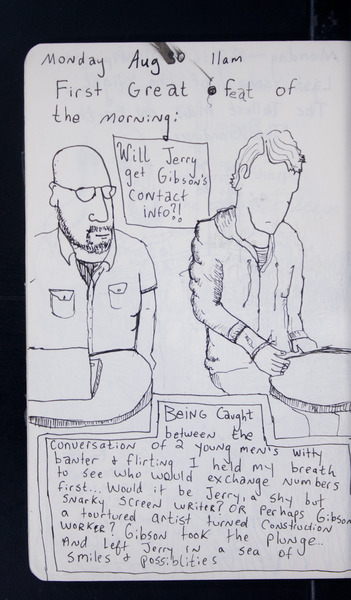 Monday Aug 30 11am
First Great feat of
the morning:
Will Jerry
get Gibson's
contact
info?!
BEING Caught
between the
conversation of 2 young men's witty
banter & flirting I held my breath
to see who would exchange numbers
first... Would it be Jerry, a shy but
snarky screen writer? OR Perhaps Gibson
a tourtured artist turned Construction
WORKER? Gibson took the plunge...
And left Jerry in a sea of
smiles & possiblities